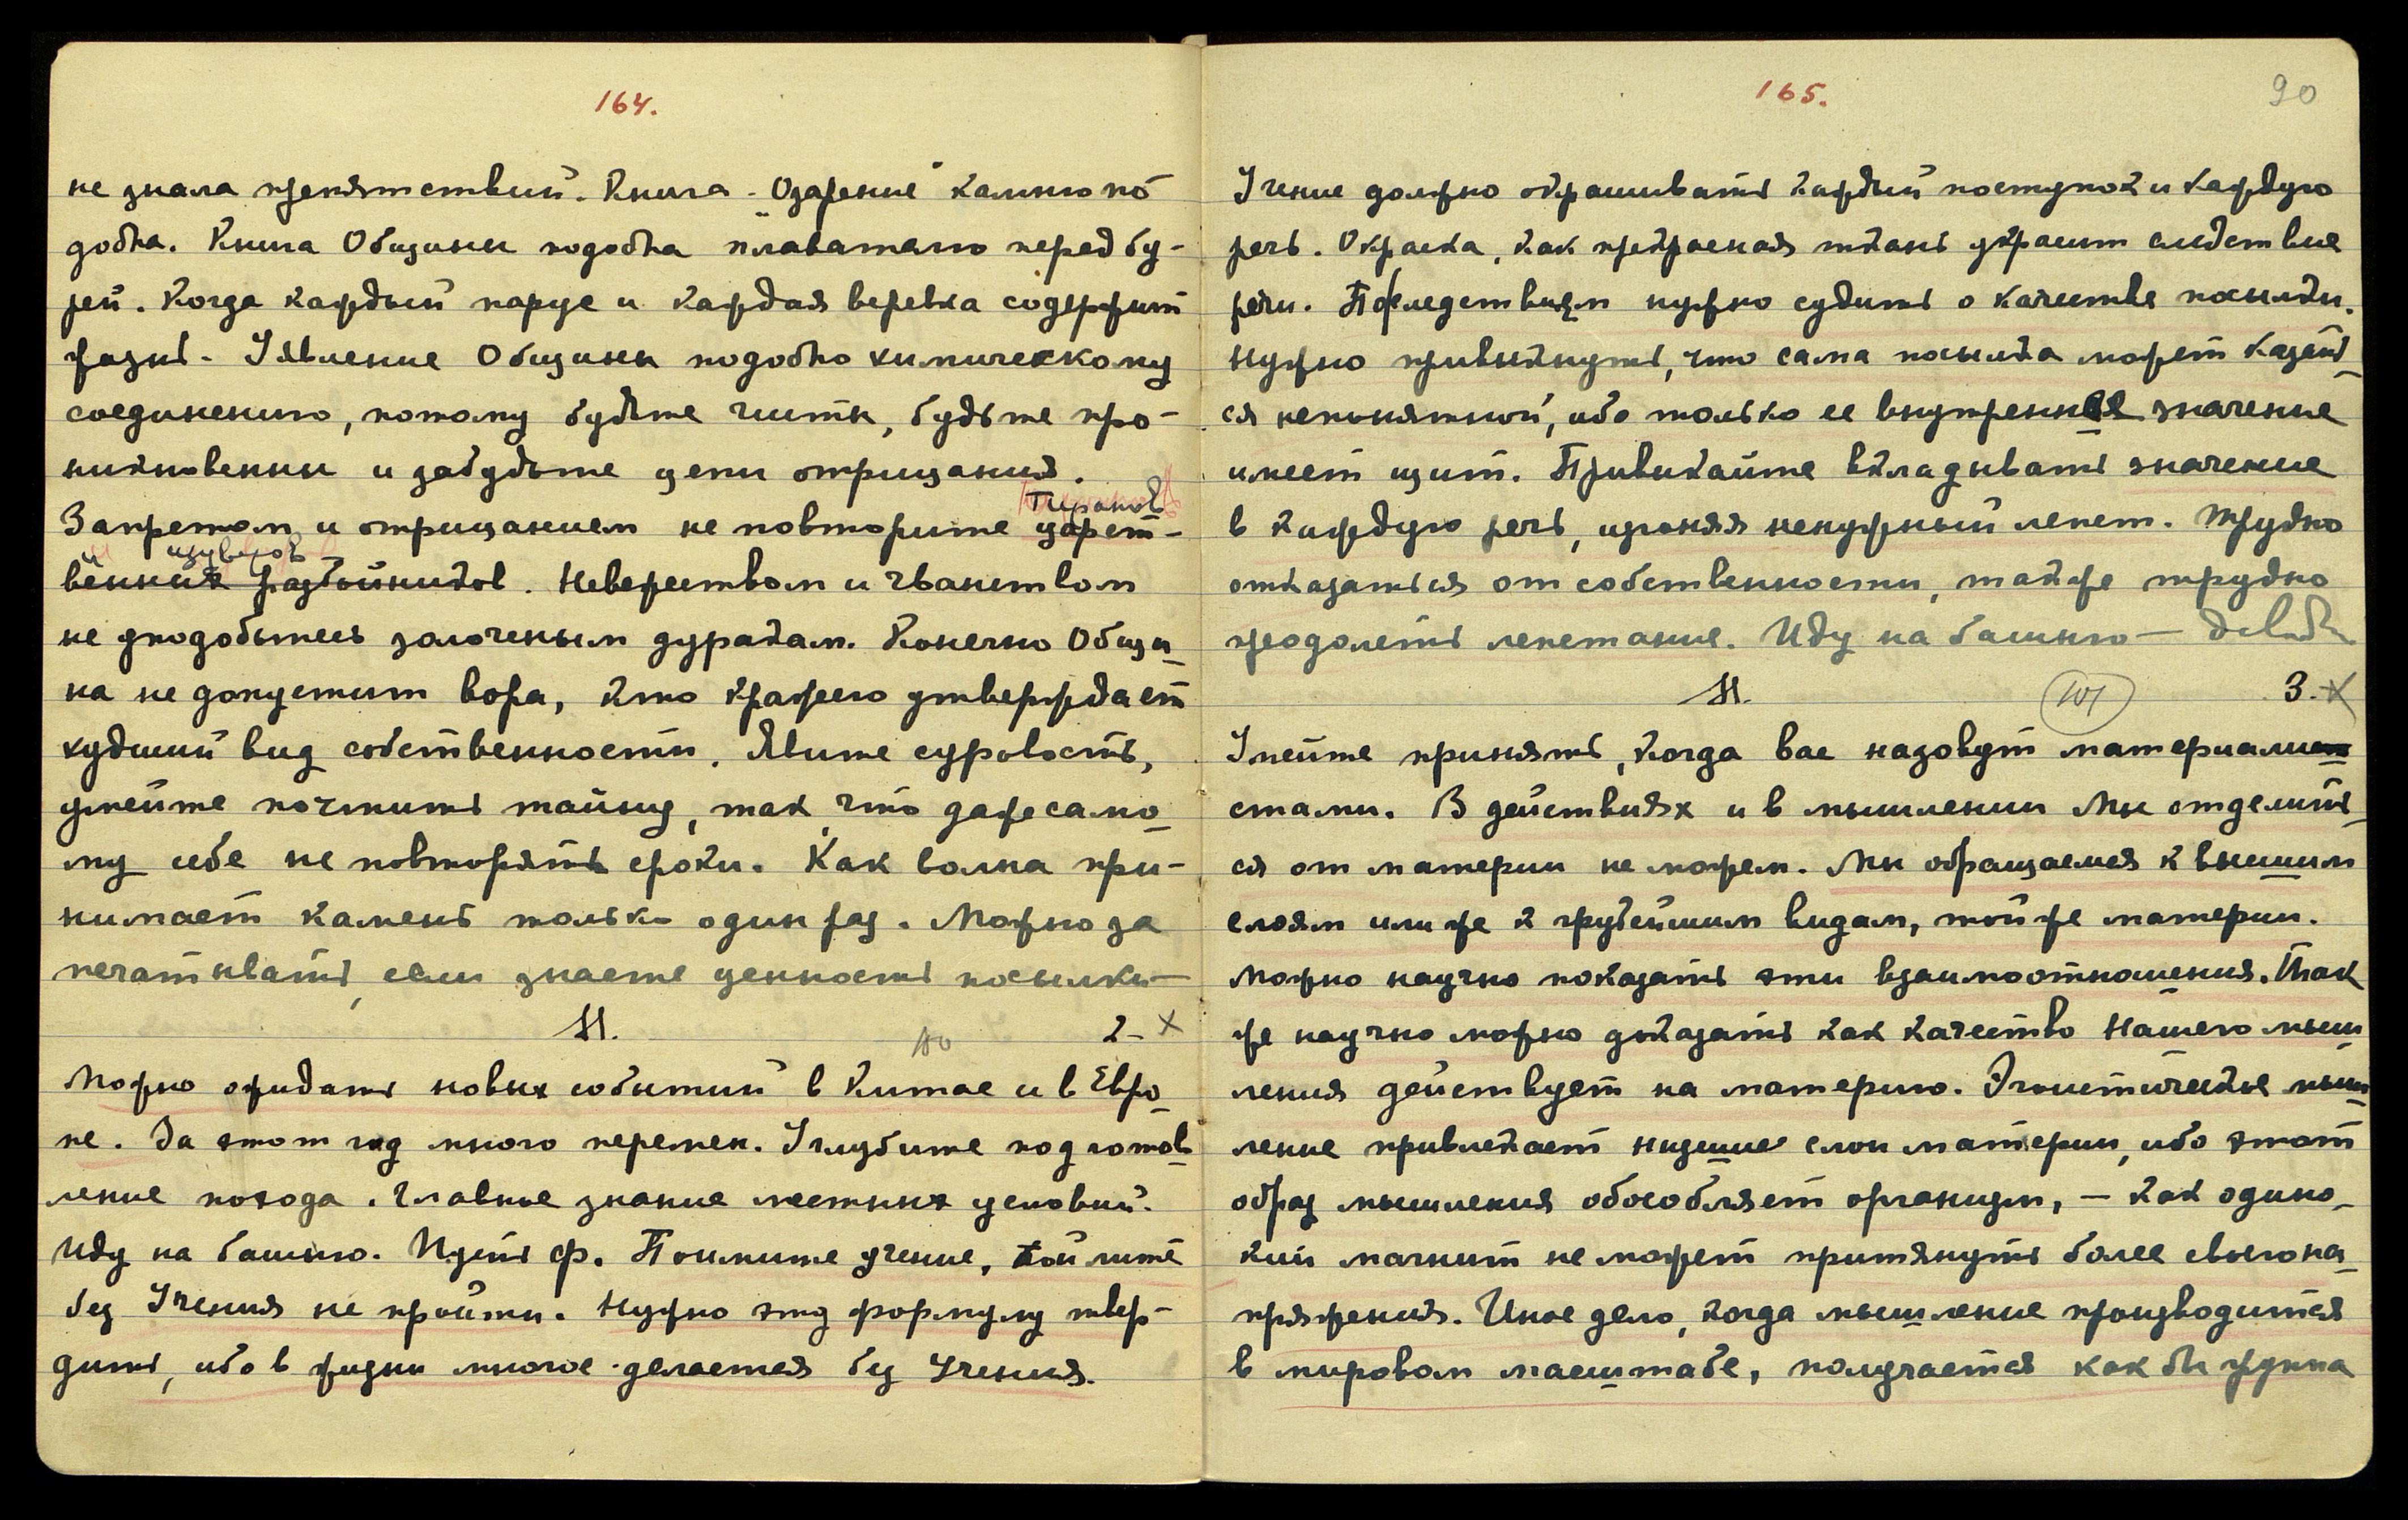 164.
не знала препятствий. Книга - „Озарение" камню по
добна. Книга Общины подобна плавателю перед бу-
рей. Когда каждый парус и каждая веревка содержит
жизнь. Уявление Общины подобно химическому
соединению, потому будьте чисты, будьте про-
никновенны и забудьте цепи отрицания.
Тиранов
Запретом и отрицанием не повторите царст-
и изуверов
венных разбойников. Невежеством и чванством
не уподобьтесь золоченым дуракам. Конечно Общи
на не допустит вора, кто кражею утверждает
худший вид собственности. Явите суровость,
умейте почтить тайну, так что даже само
му себе не повторять сроки. Как волна при-
нимает камень только один раз. Можно за
печатывать, если знаете ценность посылки —
М.
110
2- х
Можно ожидать новых событий в Китае и в Евро
пе. За этот год много перемен. Углубите подготов
ление похода. Главное знание местных условий.
Иду на башню. Пусть ф. Поймите учение,
без Учения не пройти. Нужно эту формулу твер-
дить, ибо в жизни многое делается без Учения.
165.
90
Учение должно окрашивать каждый поступок и каждую
речь. Окраска, как прекрасная ткань украсит следствие
речи. По следствиям нужно судить о качестве посылки.
Нужно привыкнуть, что сама посылка может казать
ся непонятной, ибо только ее внутреннее значение
имеет щит. Привыкайте вкладывать значение
в каждую речь, изгоняя ненужный лепет. Трудно
отказаться от собственности, также трудно
преодолеть лепетание. Иду на башню —
М.
101
3. х
Умейте принять, когда вас назовут материали
стами. В действиях и в мышлении Мы отделить
ся от материи не можем. Мы обращаемся к высшим
слоям или же к грубейшим видам, той же материи.
Можно научно показать эти взаимоотношения. Так
же научно можно доказать как качество Нашего мыш
ления действует на материю. Эгоистическое мыш
ление привлекает низшие слои материи, ибо этот
образ мышления обособляет организм, — как одино-
кий магнит не может притянуть более своего на
пряжения. Иное дело, когда мышление производится
в мировом масштабе, получается как бы группа